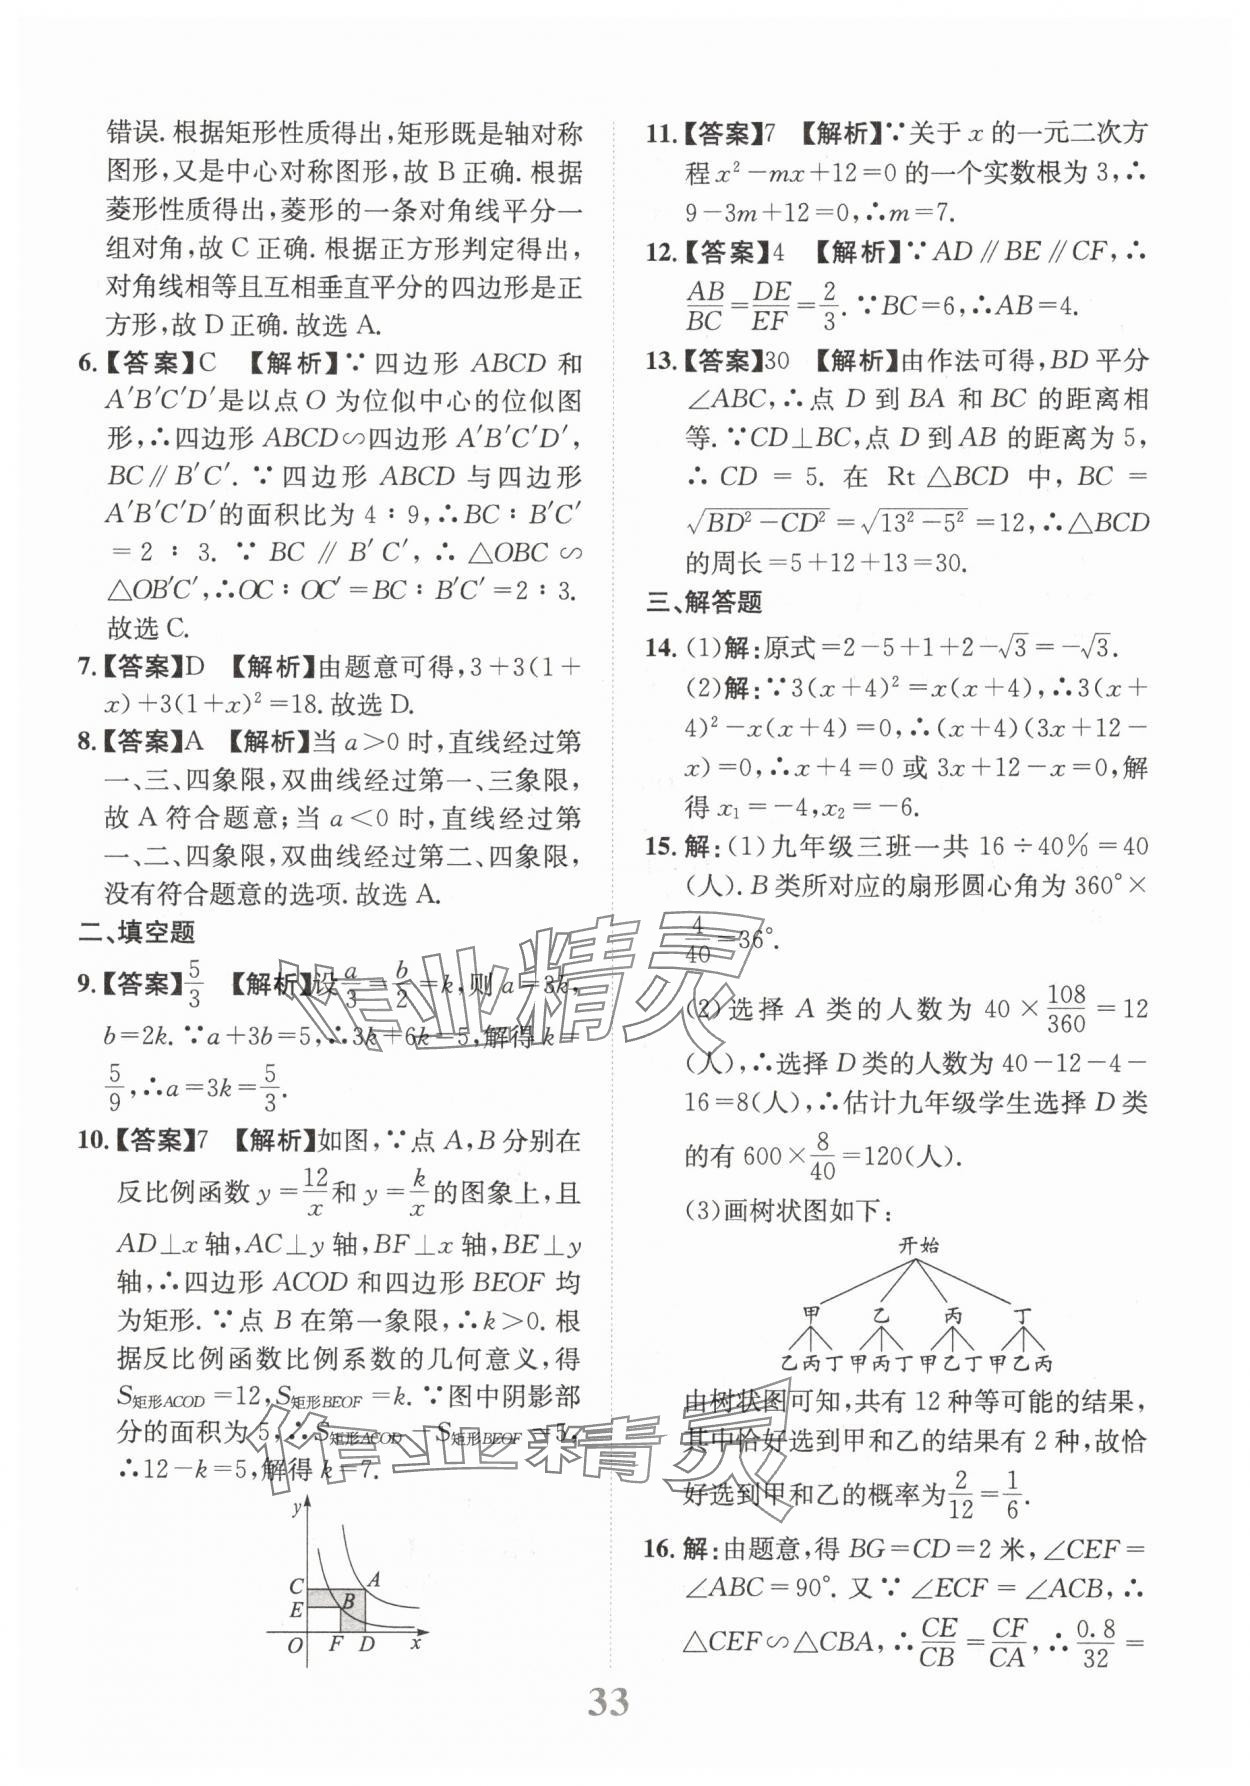 错误. 根据矩形性质得出,矩形既是轴对称
图形,又是中心对称图形,故 B 正确. 根据
菱形性质得出,菱形的一条对角线平分一
组对角,故 C 正确. 根据正方形判定得出,
对角线相等且互相垂直平分的四边形是正
方形,故 D 正确. 故选 A.
6.【答案】C 【解析】∵四边形 ABCD 和
A′B′C′D′是以点 O 为位似中心的位似图
形,∴四边形 ABCD∽四边形 A′B′C′D′,
BC∥B′C′. ∵四边形 ABCD 与四边形
A′B′C′D′的面积比为 4∶9,∴BC∶B′C′
=2∶3. ∵BC∥B′C′,∴△OBC∽
△OB′C′,∴OC∶OC′=BC∶B′C′=2∶3.
故选 C.
7.【答案】D 【解析】由题意可得,3+3(1+
x)+3(1+x)²=18. 故选 D.
8.【答案】A 【解析】当 a>0 时,直线经过第
一、三、四象限,双曲线经过第一、三象限,
故 A 符合题意;当 a<0 时,直线经过第
一、二、四象限,双曲线经过第二、四象限,
没有符合题意的选项. 故选 A.
二、填空题
9.【答案】5/3 【解析】设 a/3=b/2=k,则 a=3k,
b=2k. ∵a+3b=5,∴3k+6k=5,解得 k=
5/9,∴a=3k=5/3.
10.【答案】7 【解析】如图,∵点 A,B 分别在
反比例函数 y=12/x 和 y=k/x 的图象上,且
AD⊥x 轴,AC⊥y 轴,BF⊥x 轴,BE⊥y
轴,∴四边形 ACOD 和四边形 BEOF 均
为矩形. ∵点 B 在第一象限,∴k>0. 根
据反比例函数比例系数的几何意义,得
S矩形ACOD=12,S矩形BEOF=k. ∵图中阴影部
分的面积为 5,∴S矩形ACOD-S矩形BEOF=5,
∴12-k=5,解得 k=7.
y
C A
E B
O F D x
11.【答案】7 【解析】∵关于 x 的一元二次方
程 x²-mx+12=0 的一个实数根为 3,∴
9-3m+12=0,∴m=7.
12.【答案】4 【解析】∵AD∥BE∥CF,∴
AB/BC=DE/EF=2/3. ∵BC=6,∴AB=4.
13.【答案】30 【解析】由作法可得,BD 平分
∠ABC,∴点 D 到 BA 和 BC 的距离相
等. ∵CD⊥BC,点 D 到 AB 的距离为 5,
∴CD=5. 在 Rt△BCD 中,BC=
√(BD²-CD²)=√(13²-5²)=12,∴△BCD
的周长=5+12+13=30.
三、解答题
14. (1)解:原式=2-5+1+2-√3=-√3.
(2)解:∵3(x+4)²=x(x+4),∴3(x+
4)²-x(x+4)=0,∴(x+4)(3x+12-
x)=0,∴x+4=0 或 3x+12-x=0,解
得 x₁=-4,x₂=-6.
15. 解:(1)九年级三班一共 16÷40%=40
(人). B 类所对应的扇形圆心角为 360°×
4/40=36°.
(2)选择 A 类的人数为 40×108/360=12
(人),∴选择 D 类的人数为 40-12-4-
16=8(人),∴估计九年级学生选择 D 类
的有 600×8/40=120(人).
(3)画树状图如下:
开始
甲 乙 丙 丁
乙丙丁 甲丙丁 甲乙丁 甲乙丙
由树状图可知,共有 12 种等可能的结果,
其中恰好选到甲和乙的结果有 2 种,故恰
好选到甲和乙的概率为 2/12=1/6.
16. 解:由题意,得 BG=CD=2 米,∠CEF=
∠ABC=90°. 又∵∠ECF=∠ACB,∴
△CEF∽△CBA,∴CE/CB=CF/CA,∴0.8/32=
33
作业精灵
作业精灵